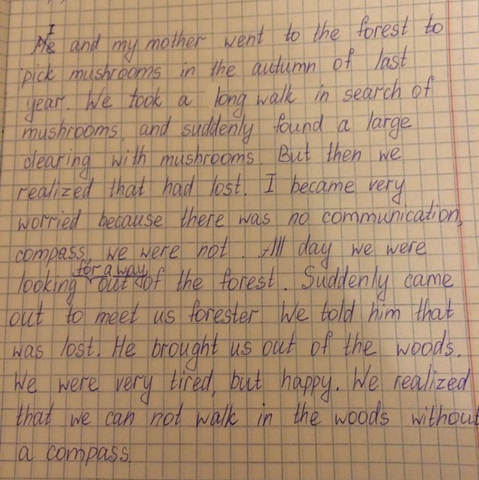 I
Me and my mother went to the forest to
pick mushrooms in the autumn of last
year. We took a long walk in search of
mushrooms, and suddenly found a large
clearing with mushrooms. But then we
realized that had lost. I became very
worried because there was no communication,
compass, we were not. All day we were
for a way
looking out of the forest. Suddenly came
out to meet us forester. We told him that
was lost. He brought us out of the woods.
We were very tired, but happy. We realized
that we can not walk in the woods without
a compass.